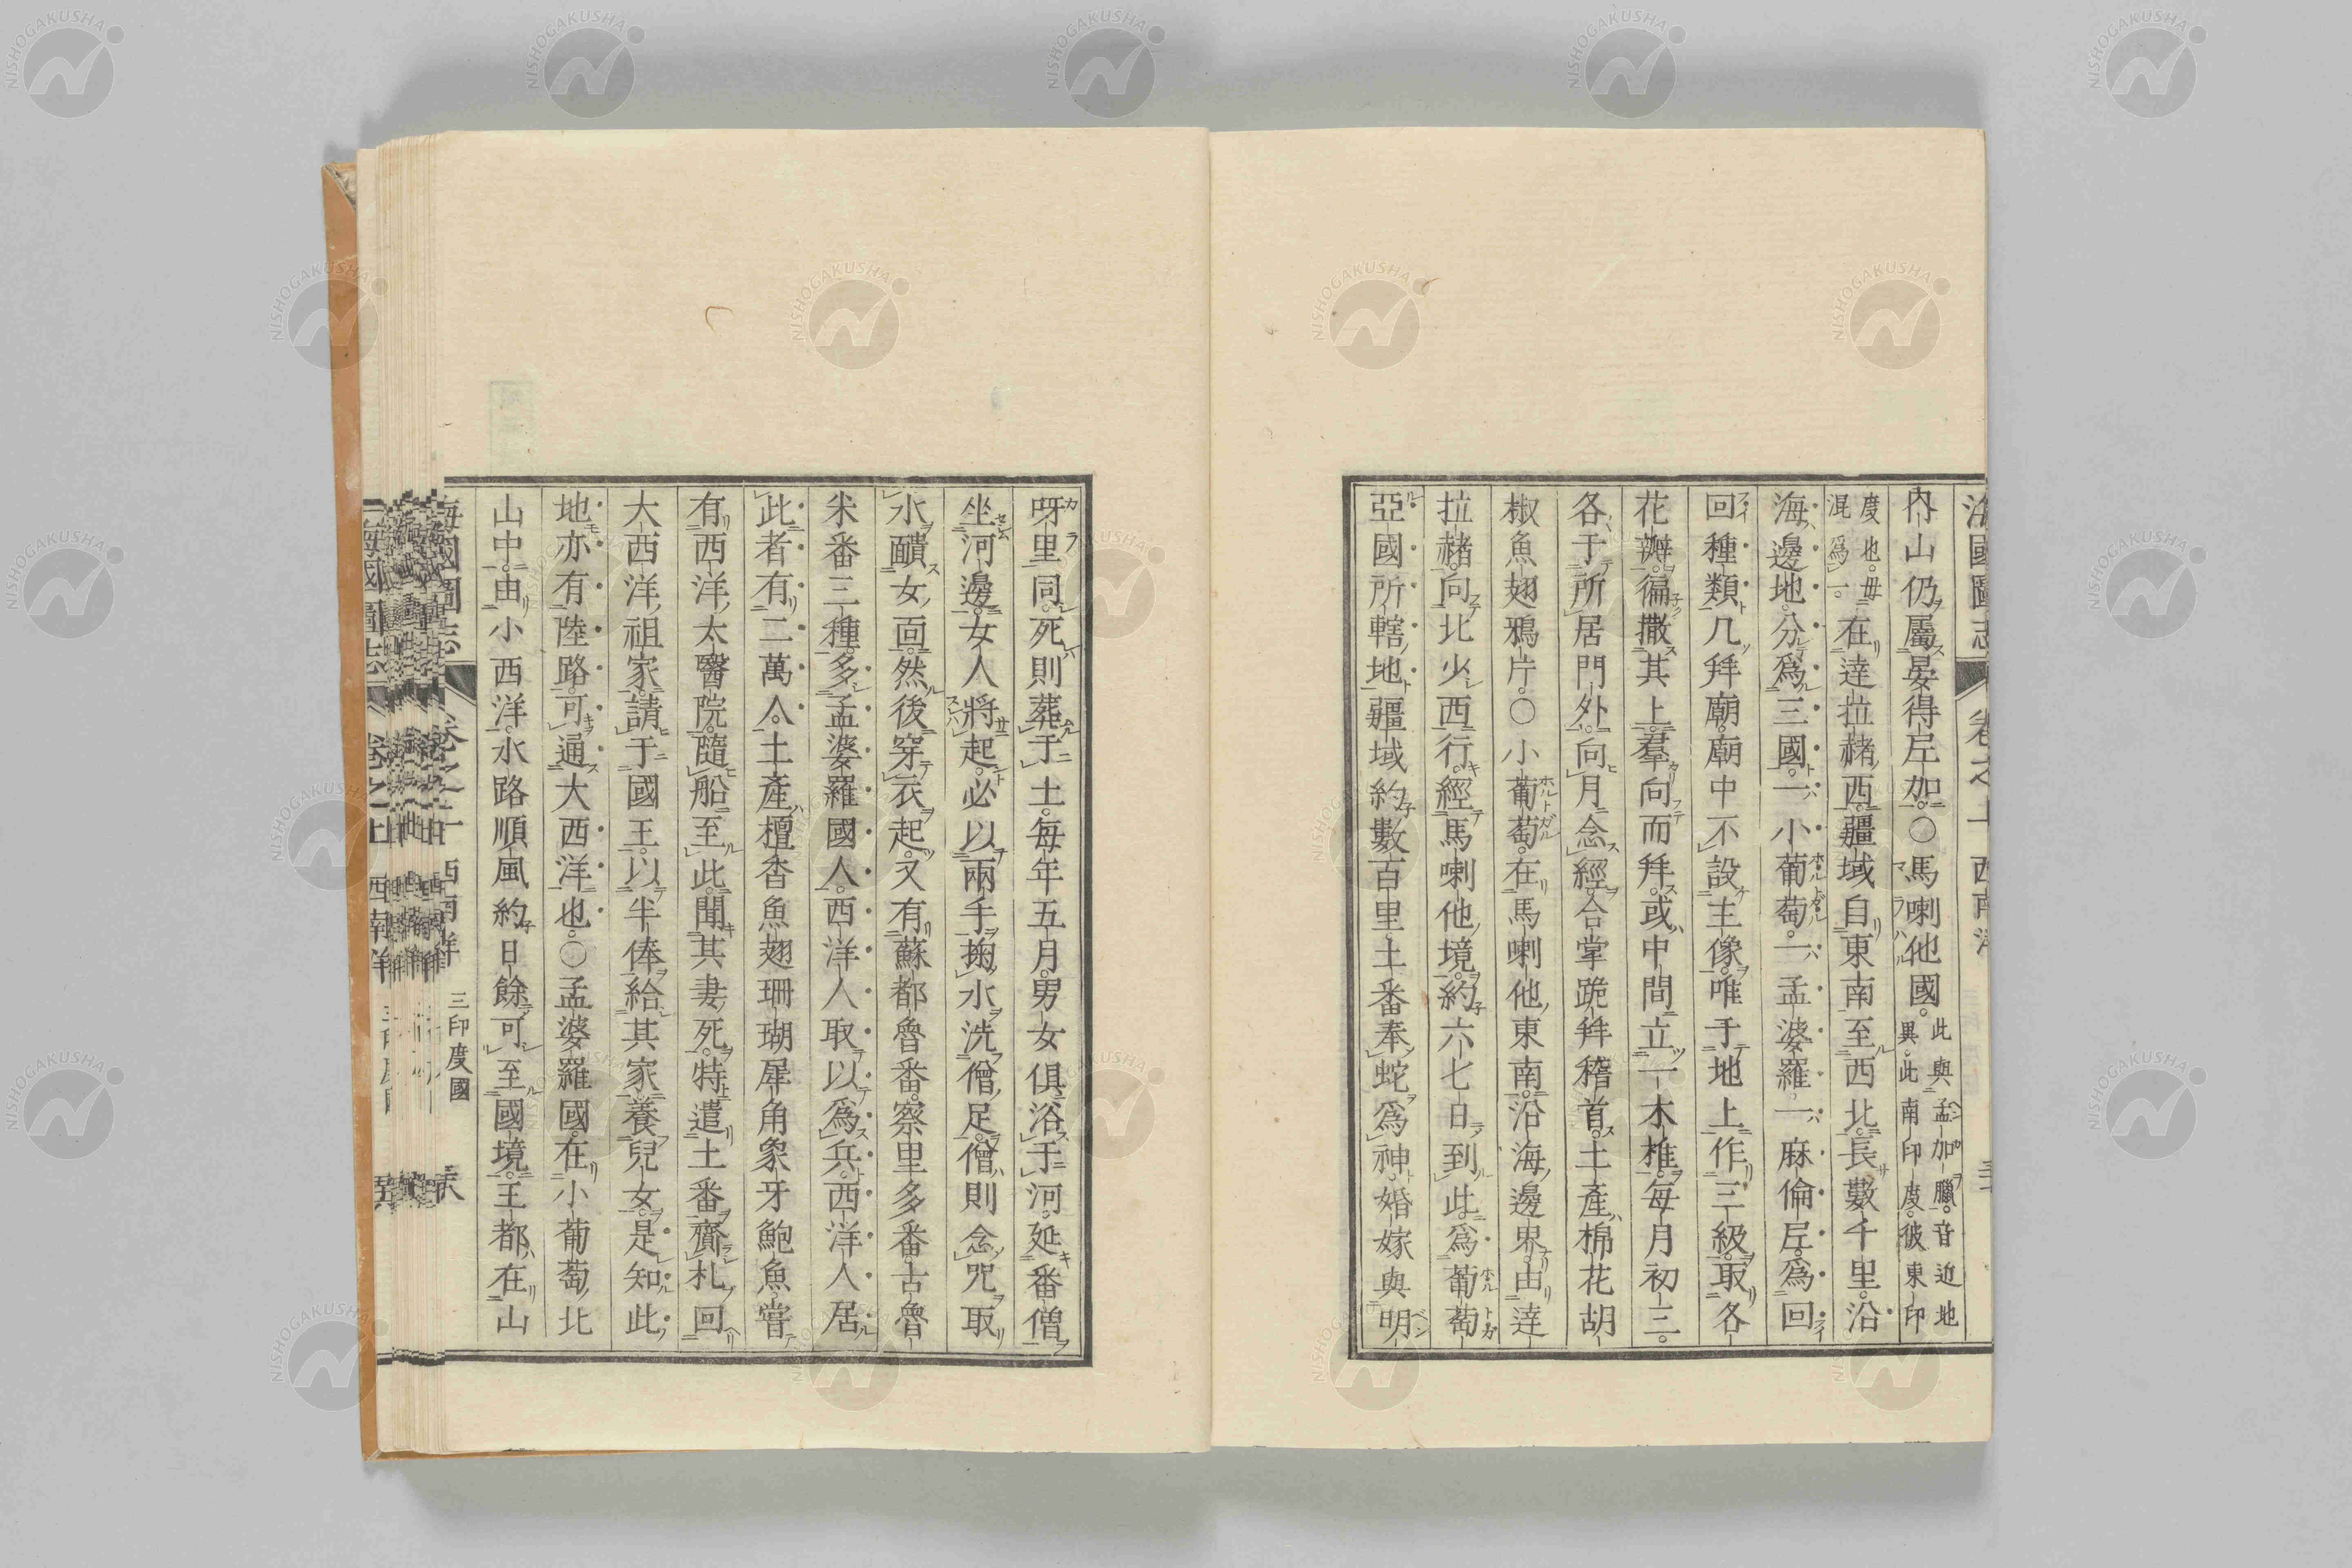 內山仍屬晏得丘加。〇馬喇他國。此與孟加臘音近地異。此南印度。彼東印
度也。毋混爲一。在達拉赭西。疆域自東南至西北。長數千里。沿
海邊地。分爲三國。一小葡萄。一孟婆羅。一麻倫丘。爲回
回種類。凡拜廟。廟中不設主像。唯于地上作三級。取各
花瓣。徧撒其上。羣向而拜。或中間立一木椎。每月初三。
各于所居門外。向月念經。合掌跪拜稽首。土產棉花胡
椒魚翅鴉片。〇小葡萄。在馬喇他東南。沿海邊界。由達
拉赭。向北少西行。經馬喇他境。約六七日到此。爲葡萄
亞國所轄地。疆域約數百里。土番奉蛇爲神。婚嫁與明
呀里同。死則葬于土。每年五月。男女俱浴于河。延番僧
坐河邊。女人將起。必以兩手掬水洗僧足。僧則念咒取
水靧女面。然後穿衣起。又有蘇都魯番。察里多番。古魯
米番三種。多孟婆羅國人。西洋人取以爲兵。西洋人居
此者有二萬人。土產檀香魚翅珊瑚犀角象牙鮑魚。嘗
有西洋太醫院。隨船至此。聞其妻死。特遣土番齎札回
大西洋祖家。請于國王。以半俸給其家。養兒女。是知此
地亦有陸路。可通大西洋也。〇孟婆羅國。在小葡萄北
山中。由小西洋。水路順風約日餘可至國境。王都在山
海國圖志 卷之 西南洋 三印度國